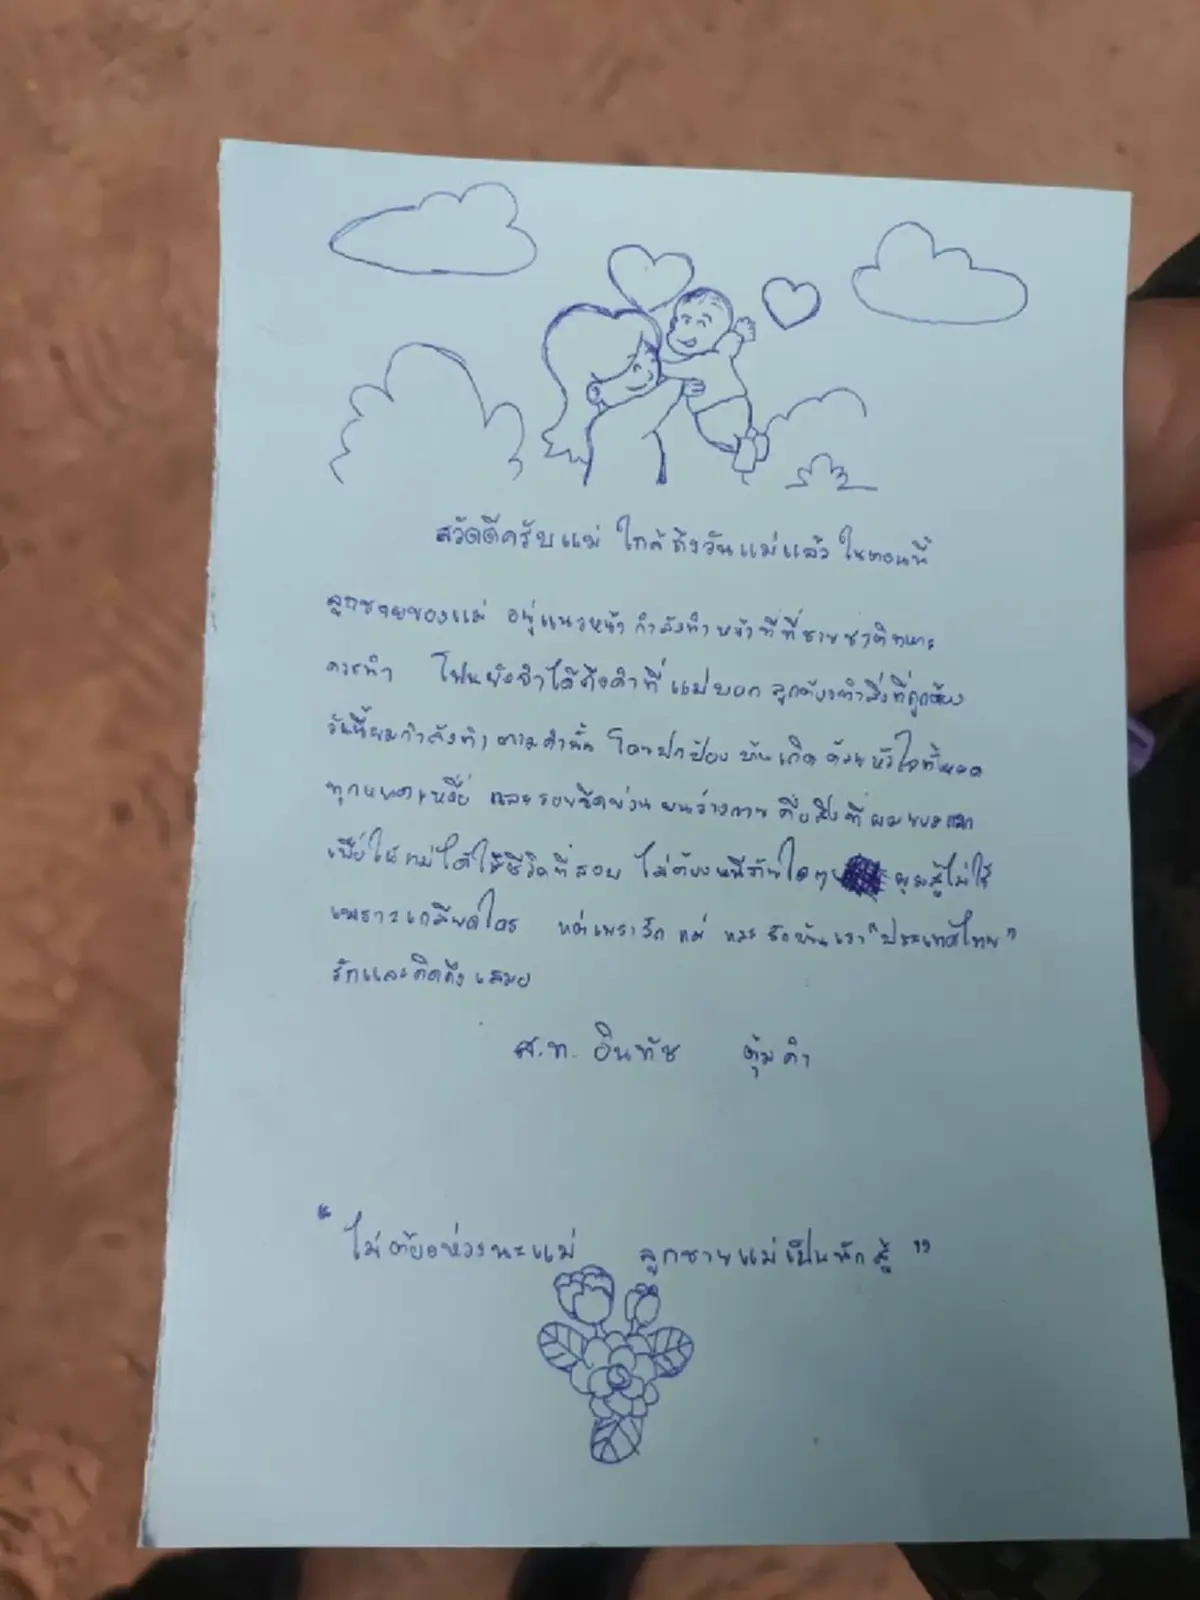 สวัดดีครับแม่ ใกล้ถึงวันแม่แล้ว ในตอนนี้
ลูกชายของแม่ อยู่แนวหน้า กำลังทำหน้าที่ที่ชายชาติทหาร
ควรทำ โฟนยังจำได้ถึงคำที่ แม่บอก ลูกต้องทำสิ่งที่ถูกต้อง
วันนี้ผมกำลังทำ ตามคำนั้น โดยปกป้อง บ้านเกิด ด้วยหัวใจทั้งหมด
ทุกหยาดเหงื่อ และรอยขีดข่วน บนร่างกาย คือสิ่งที่ ผมยอมแลก
เพื่อให้แม่ได้ใช้ชีวิตที่สงบ ไม่ต้องหนีภัยใดๆ ผมสู้ไม่ใช่
เพราะเกลียดใคร แต่เพราะรัก แม่ และ รักบ้านเรา "ประเทศไทย"
รักและคิดถึง เสมอ
ส.ท. อินทัช ตุ้มคำ
" ไม่ต้องห่วงนะแม่ ลูกชายแม่เป็นนักสู้ "